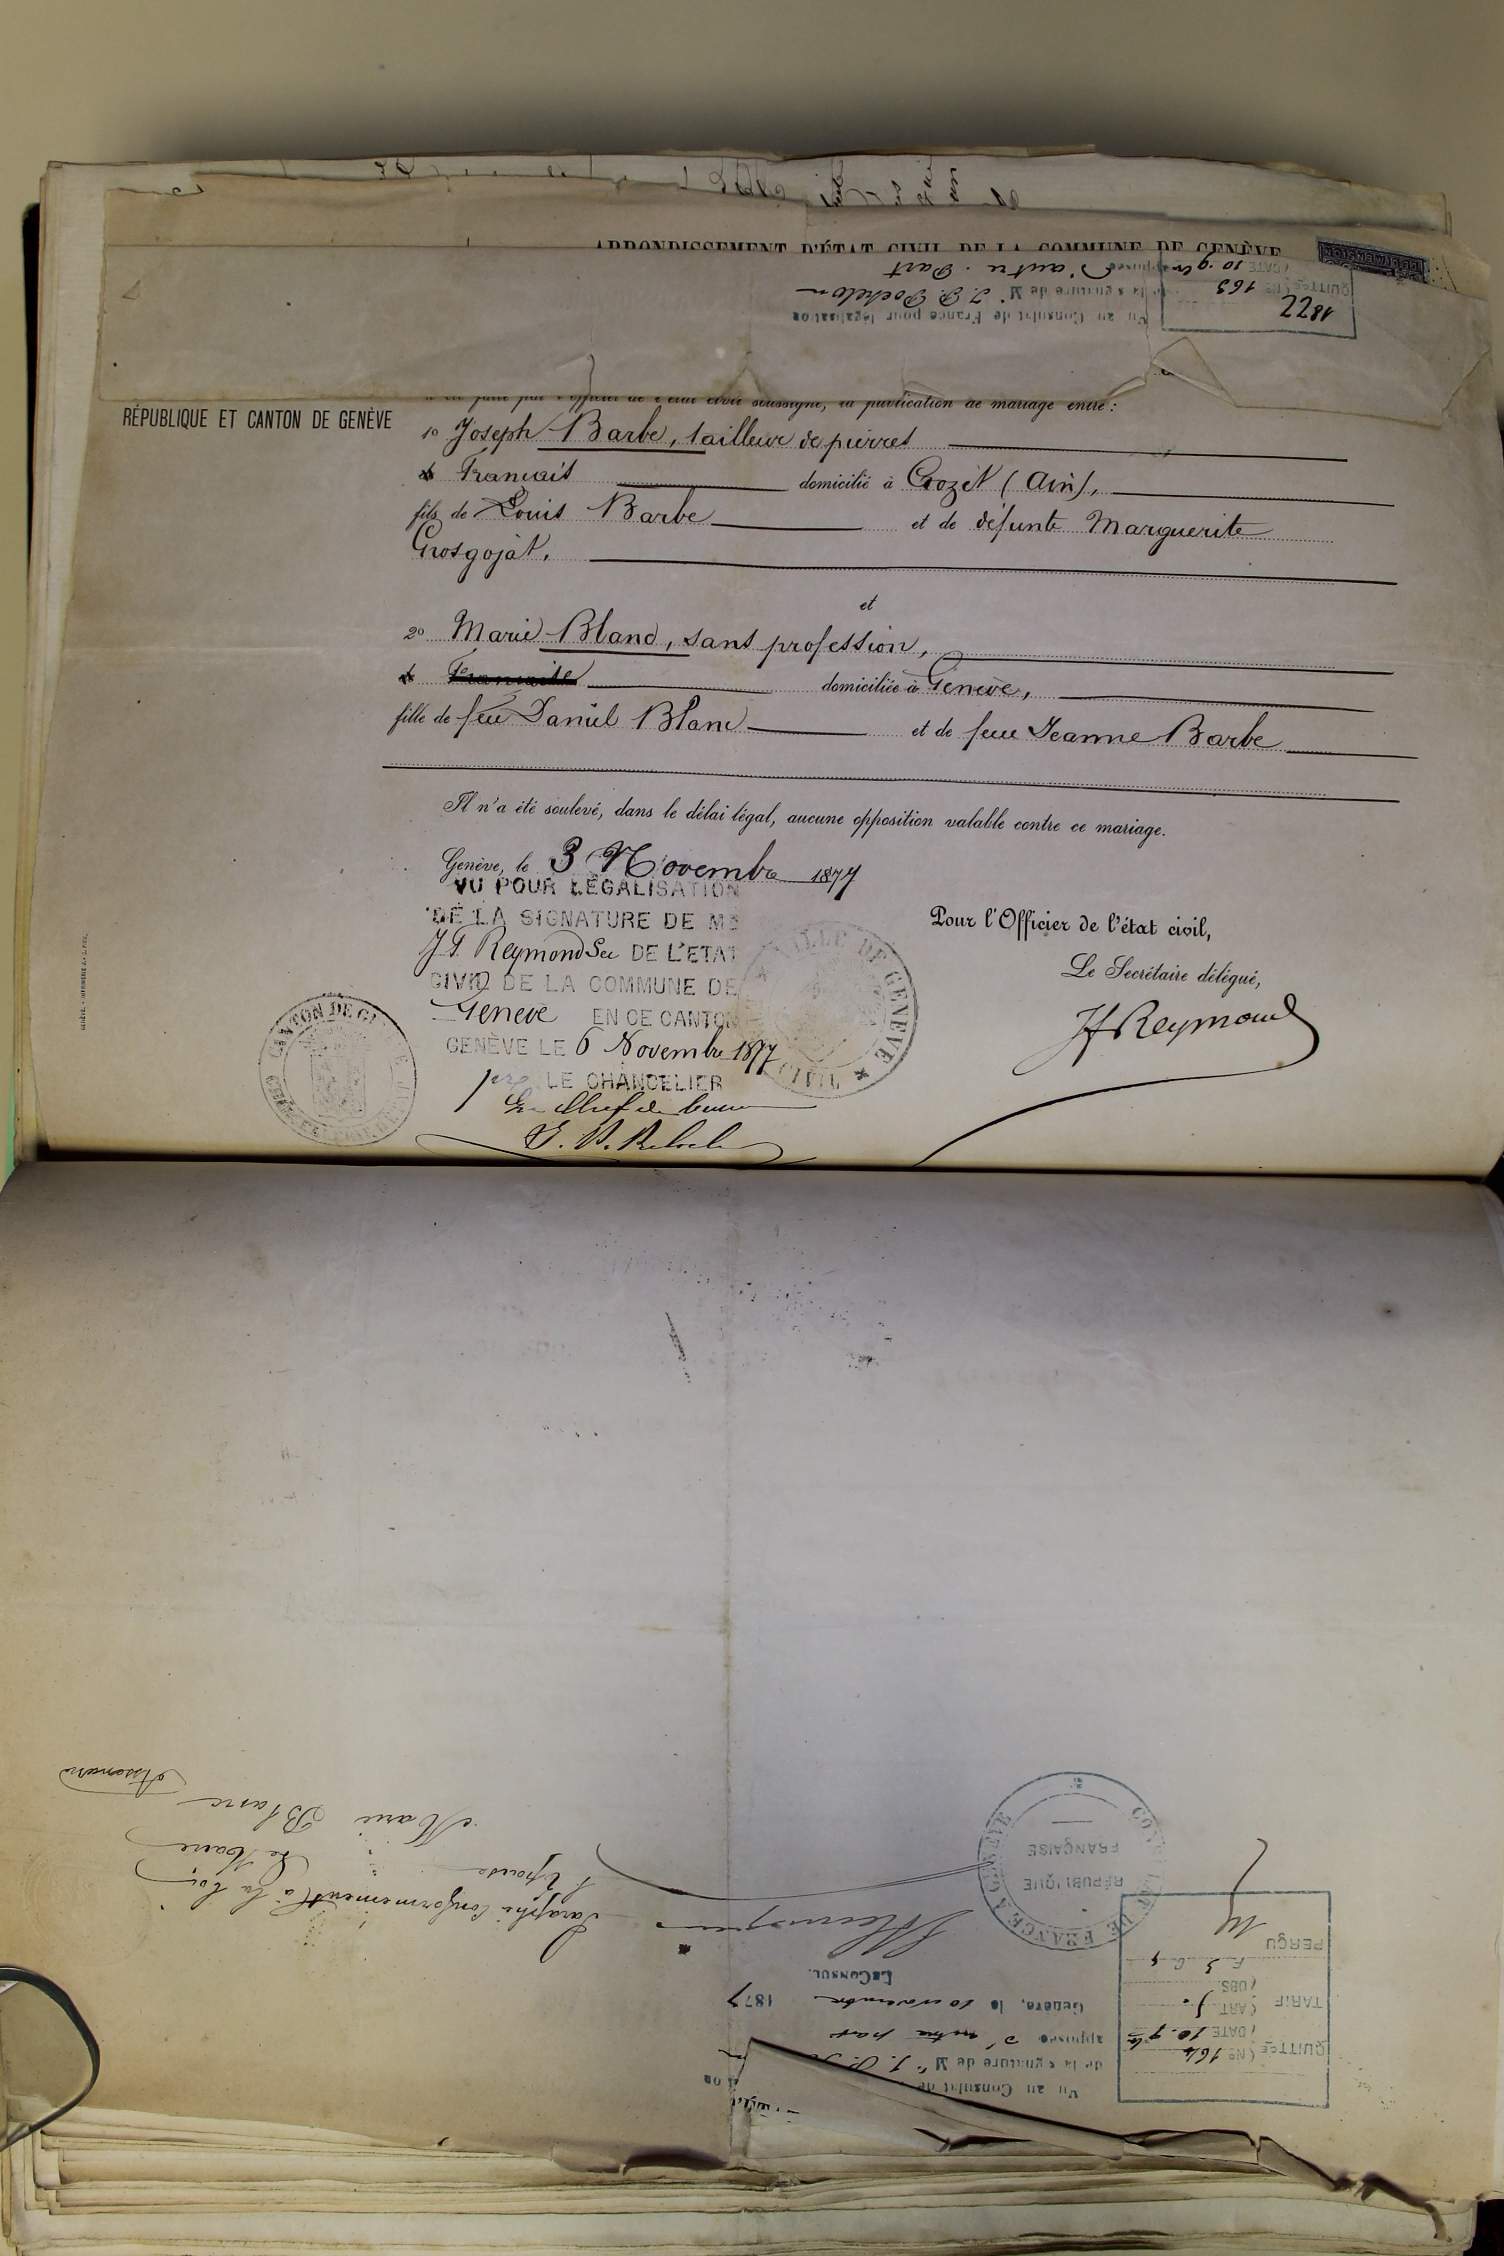 ARRONDISSEMENT D'ÉTAT CIVIL DE LA COMMUNE DE GENÈVE
1877
QUITTce (No 163
(DATE 10. 9bre
Vu au Consulat de France pour légalisation
de la signature de Mr J. P. Pochelon
apposée d'autre part
RÉPUBLIQUE ET CANTON DE GENÈVE
a été faite par l'officier de l'état civil soussigné, la publication de mariage entre :
1o Joseph Barbe, tailleur de pierres
Français domicilié à Crozet (Ain),
fils de Louis Barbe et de défunte Marguerite
Grosgojat.
et
2o Marie Blanc, sans profession,
Française domiciliée à Genève,
fille de feu Daniel Blanc et de feue Jeanne Barbe
Il n'a été soulevé, dans le délai légal, aucune opposition valable contre ce mariage.
Genève, le 3 Novembre 1877
VU POUR LÉGALISATION
DE LA SIGNATURE DE MR
J. F. Reymond Sec DE L'ETAT
CIVIL DE LA COMMUNE DE
Genève EN CE CANTON
GENÈVE LE 6 Novembre 1877
pr LE CHANCELIER
Le Chef de bureau
Pour l'Officier de l'état civil,
Le Secrétaire délégué,
JF Reymond
VILLE DE GENEVE
CIVIL
CANTON DE GENÈVE
Vu au Consulat de
de la signature de Mr J. P.
apposée d'autre part
Genève, le 10 novembre 1877
LE CONSUL.
QUITTce (No 164
(DATE 10. 9bre
TARIF (ART.
(OBS.
PERÇU
CONSULAT DE FRANCE A GENÈVE
RÉPUBLIQUE
FRANÇAISE
Paraphé conformément à la loi
L'épouse Le Maire
Marie Blanc